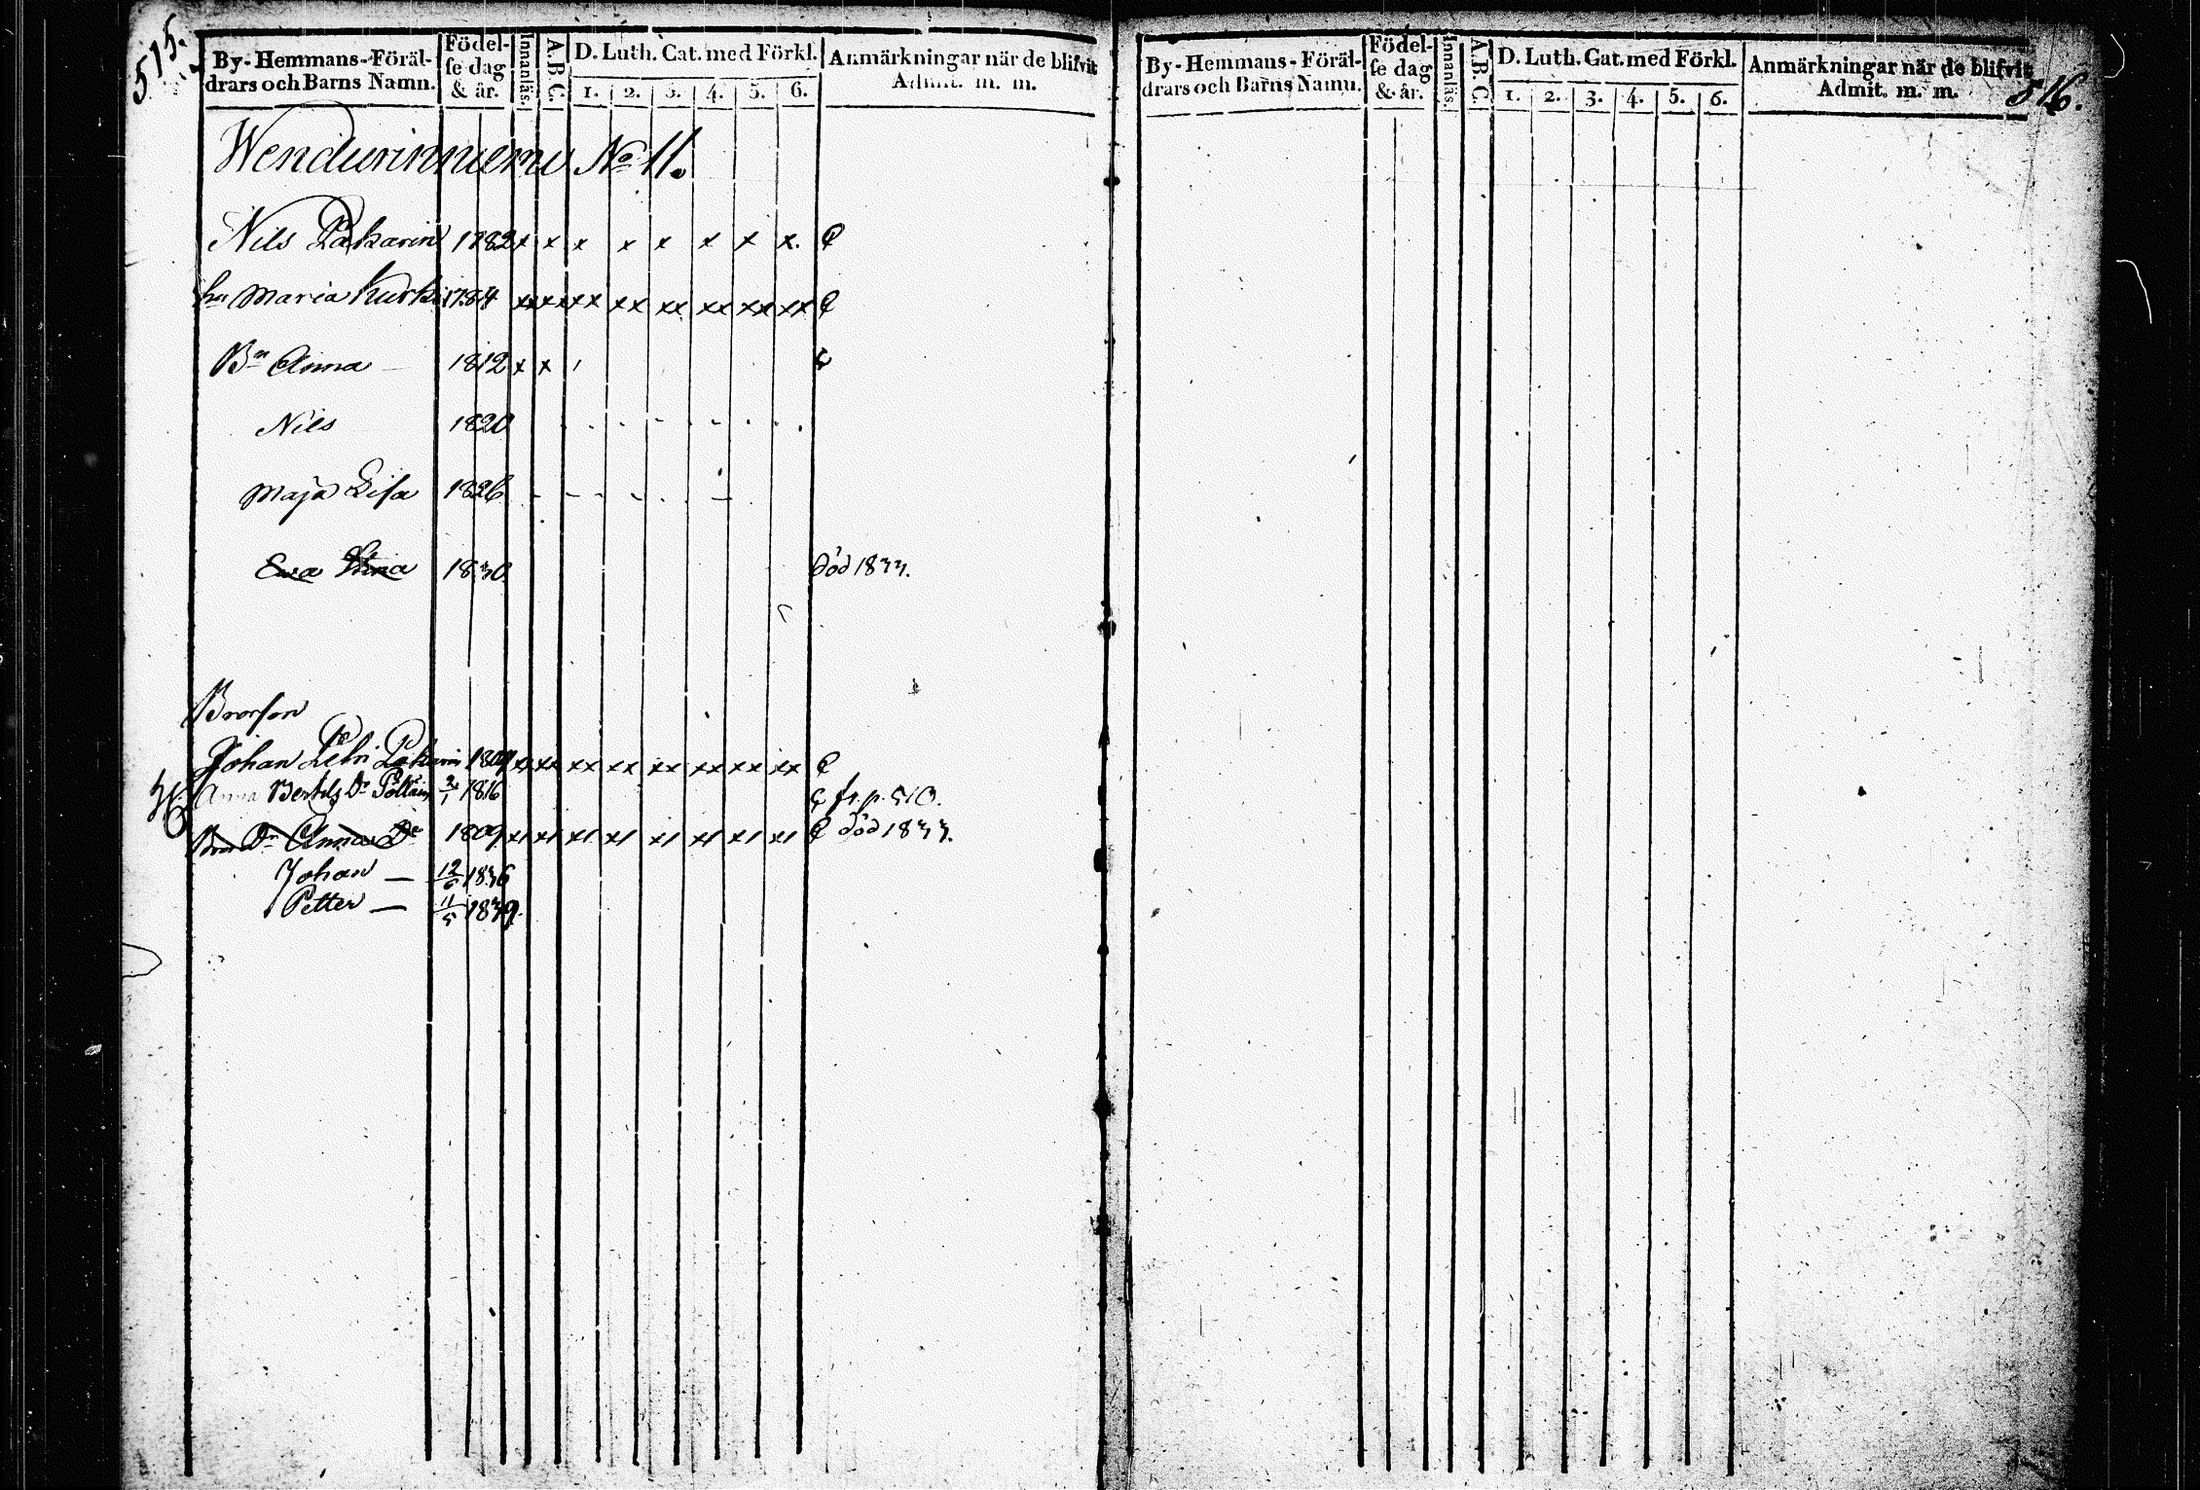 515.
By-Hemmans-Föräl-
drars och Barns Namn.
Födel-
se dag
& år.
Innanläs.
A.B.C.
D. Luth. Cat. med Förkl.
1. 2. 3. 4. 5. 6.
Anmärkningar när de blifvit
Admit. m. m.
No 11.
Nils Pakarin 1782 x x x x x x x x.
hu Maria Kurki 1784 xx xx xx xx xx xx xx xx
Bn Anna 1812 x x
Nils 1820
Maja Lisa 1826
Ewa Stina 1830 död 1833.
Brorson
Johan Petri Pakarin 1809 xx xx xx xx xx xx xx xx
Anna Bertils Dr 2/1 1816 fr. p. 510.
Anna Dr 1809 x1 x1 x1 x1 x1 x1 x1 x1 död 1833.
Johan — 12/6 1836
Petter — 11/5 1839.
By-Hemmans-Föräl-
drars och Barns Namn.
Födel-
se dag
& år.
Innanläs.
A.B.C.
D. Luth. Cat. med Förkl.
1. 2. 3. 4. 5. 6.
Anmärkningar när de blifvit
Admit. m. m.
516.